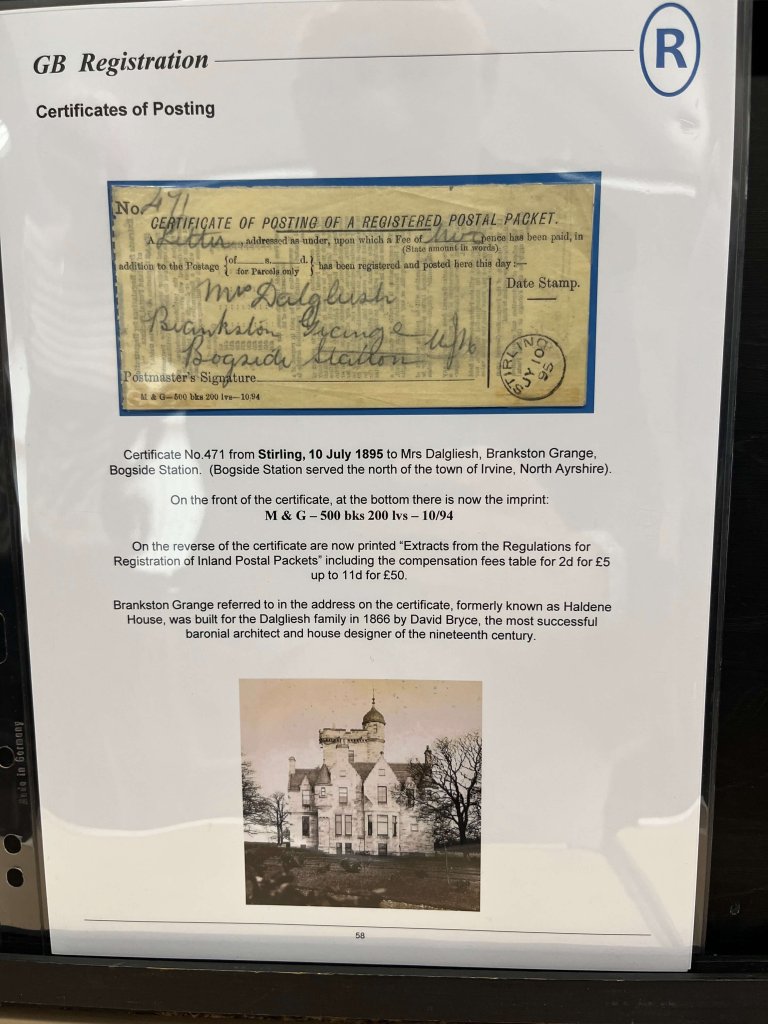 GB Registration
R
Certificates of Posting
No. 471
CERTIFICATE OF POSTING OF A REGISTERED POSTAL PACKET.
A Letter addressed as under, upon which a Fee of two pence has been paid, in
(State amount in words)
addition to the Postage { of s. d. for Parcels only } has been registered and posted here this day:—
Date Stamp.
Mrs Dalgliesh
Brankston Grange
Bogside Station
STIRLING
JY 10
95
Postmaster's Signature
M & G—500 bks 200 lvs—10/94
Certificate No.471 from Stirling, 10 July 1895 to Mrs Dalgliesh, Brankston Grange,
Bogside Station. (Bogside Station served the north of the town of Irvine, North Ayrshire).
On the front of the certificate, at the bottom there is now the imprint:
M & G – 500 bks 200 lvs – 10/94
On the reverse of the certificate are now printed “Extracts from the Regulations for
Registration of Inland Postal Packets” including the compensation fees table for 2d for £5
up to 11d for £50.
Brankston Grange referred to in the address on the certificate, formerly known as Haldene
House, was built for the Dalgliesh family in 1866 by David Bryce, the most successful
baronial architect and house designer of the nineteenth century.
58
Made in Germany